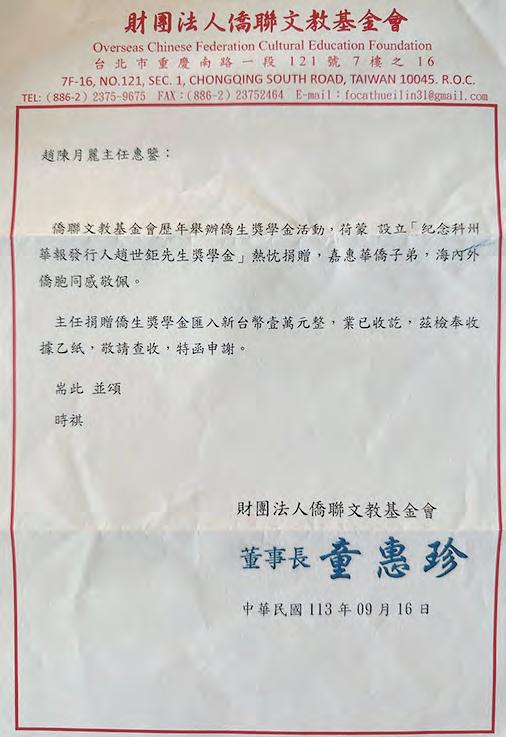 財團法人僑聯文教基金會
Overseas Chinese Federation Cultural Education Foundation
台北市重慶南路一段 121 號 7 樓之 16
7F-16, NO.121, SEC. 1, CHONGQING SOUTH ROAD, TAIWAN 10045. R.O.C.
TEL: (886-2) 2375-9675 FAX:(886-2) 23752464 E-mail：focathueilin31@gmail.com
趙陳月麗主任惠鑒：
僑聯文教基金會歷年舉辦僑生獎學金活動，荷蒙 設立「紀念科州
華報發行人趙世鉅先生獎學金」熱忱捐贈，嘉惠華僑子弟，海內外
僑胞同感敬佩。
主任捐贈僑生獎學金匯入新台幣壹萬元整，業已收訖，茲檢奉收
據乙紙，敬請查收，特函申謝。
耑此 並頌
時祺
財團法人僑聯文教基金會
董事長 童惠珍
中華民國 113 年 09 月 16 日